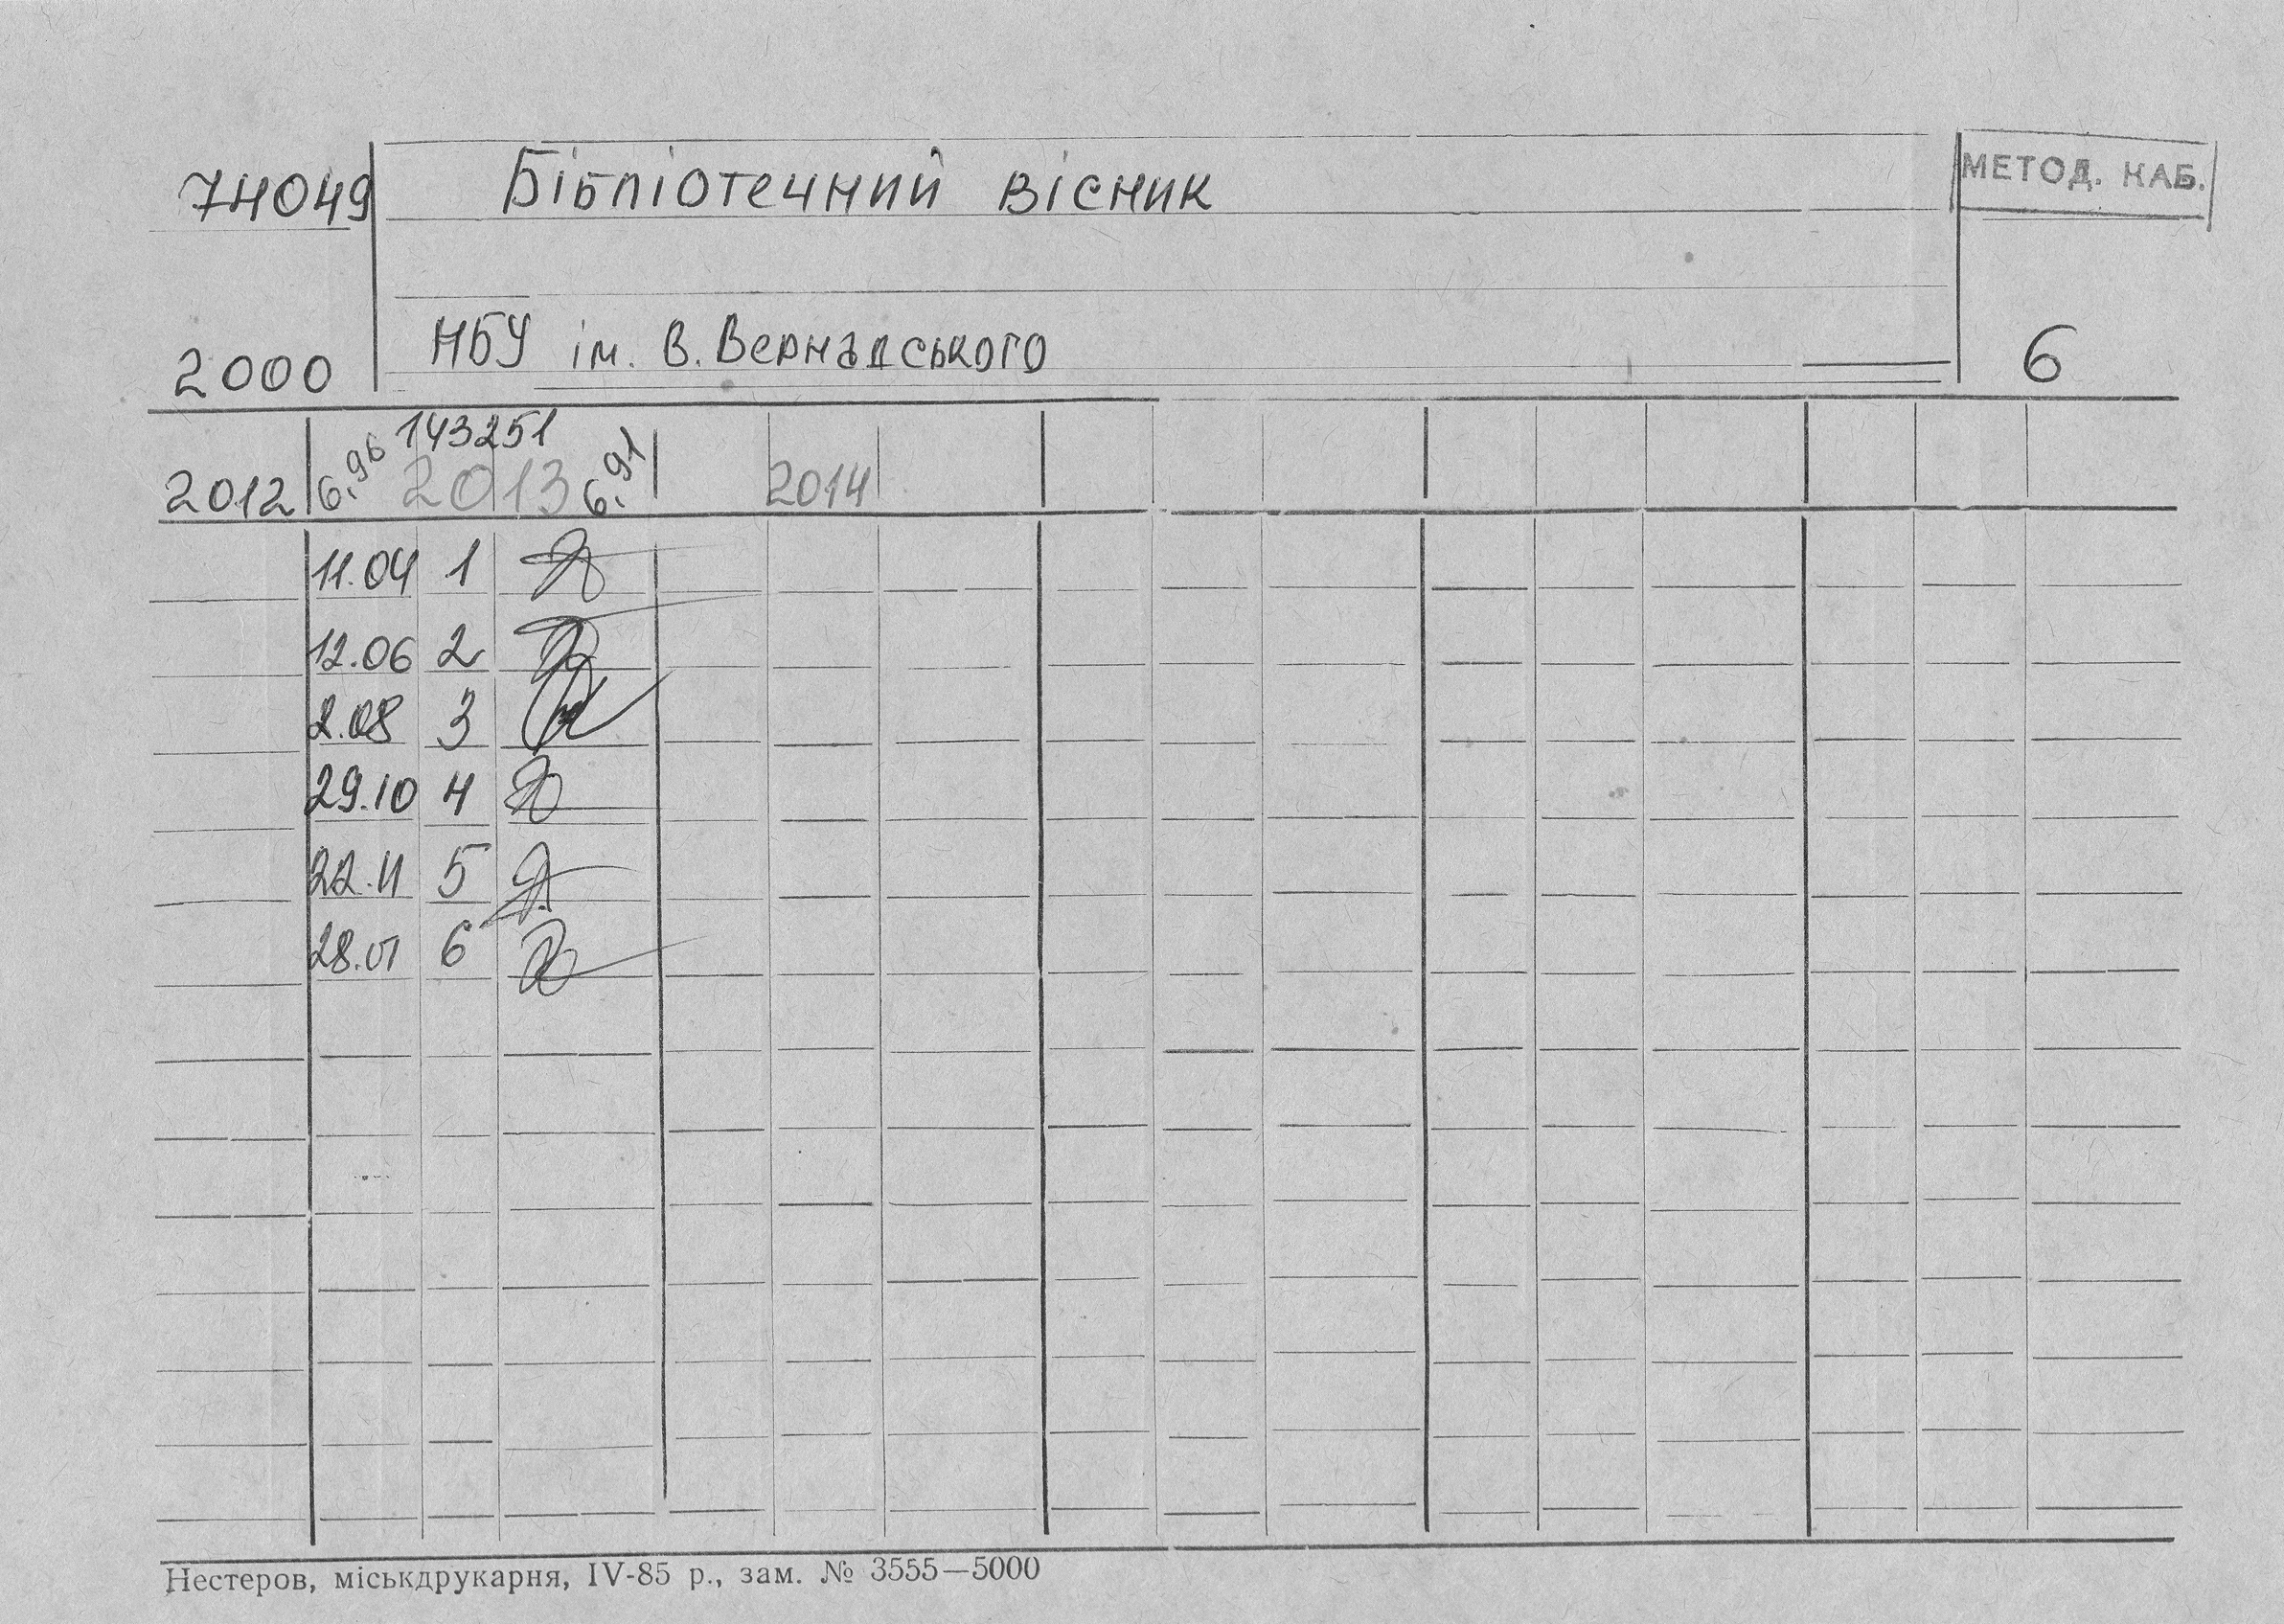 74049 Бібліотечний вісник МЕТОД. КАБ.
2000 НБУ ім. В. Вернадського 6
143251
2012 6.96 2013 6.91 2014
11.04 1
12.06 2
2.08 3
29.10 4
22.11 5
28.01 6
Нестеров, міськдрукарня, IV-85 р., зам. № 3555—5000